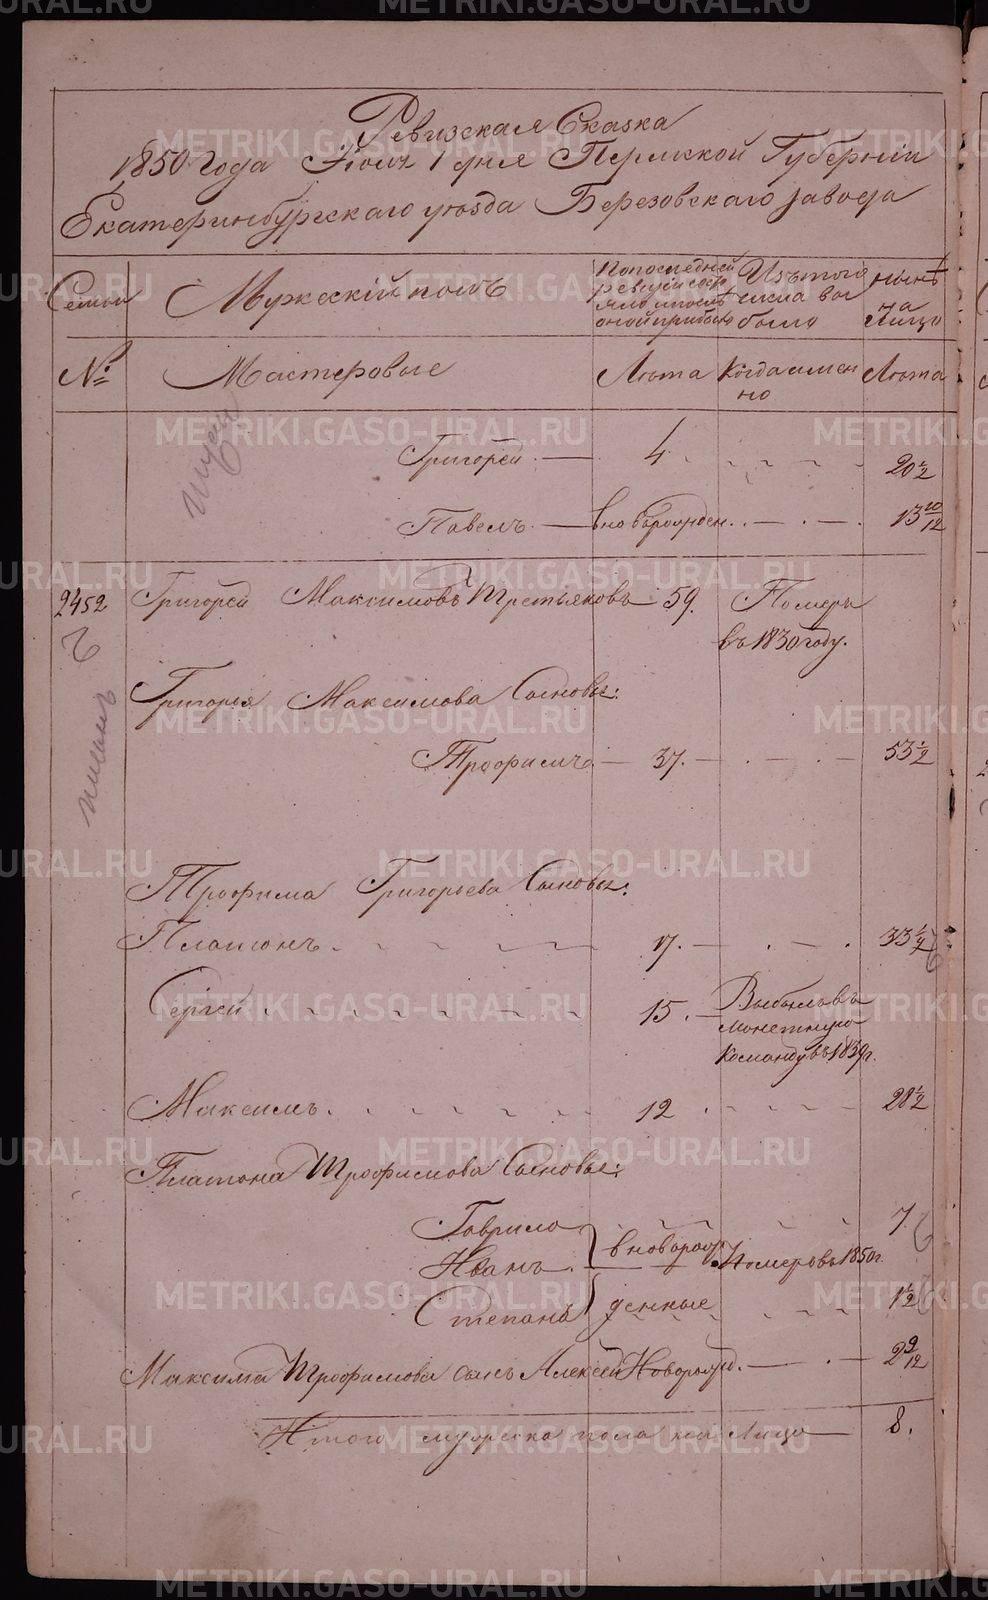 Ревизская Сказка
1850 года Июня 1 дня Пермской Губерніи
Екатеринбургскаго уѣзда Березовскаго завода
Семьи
Мужескій полъ
По последней ревизіи состояло и послѣ оной прибыло
Изъ того числа выбыло
Нынѣ на Лицо
№
Мастеровые
Лѣта
Когда именно
Лѣта
Григорей 4 20 1/2
Павелъ вновьрожден. 13 10/12
2452 Григорей Максимовъ Третьяковъ 59. Померъ
въ 1830 году.
Григорья Максимова Сыновья:
Трофимъ 37. 53 1/2
Трофима Григорьева Сыновья:
Платонъ 17. 33 1/2
Сергей 15. Выбылъ въ
монетную
команду въ 1839 г.
Максимъ 12 28 1/2
Платона Трофимова Сыновья:
Гаврило 7
Иванъ вноворож Померъ въ 1850 г.
Степанъ денные 1 1/2
Максима Трофимова сынъ Алексей Новорожд. 2 9/12
Итого мужеска пола на Лицо 8.
METRIKI.GASO-URAL.RU